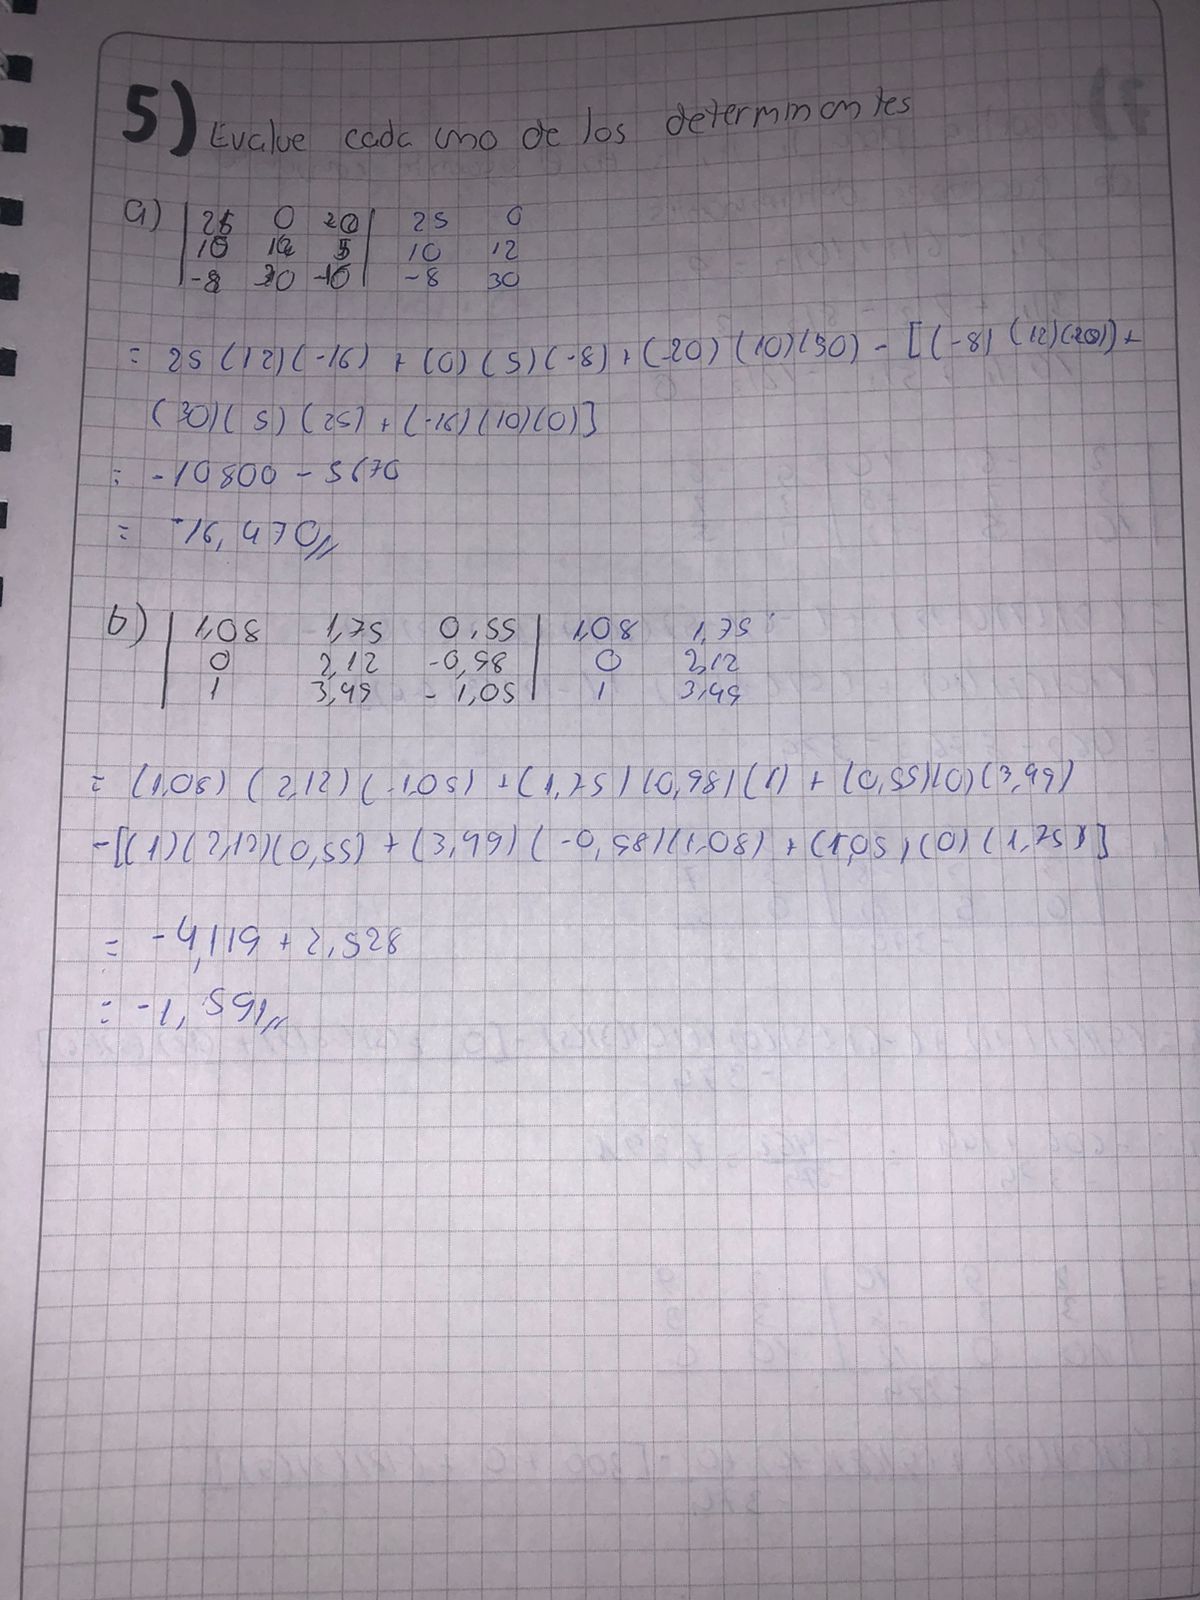 5) Evalue cada uno de los determinantes
a) | 25 0 20 | 25 0
| 10 12 5 | 10 12
| -8 30 -16 | -8 30
= 25 (12) (-16) + (0) (5) (-8) + (-20) (10) (30) - [(-8) (12) (20)] +
(30) (5) (25) + (-16) (10) (0)]
= -10800 - 5670
= -16,470//
b) | 1,08 1,75 0,55 | 1,08 1,75
| 0 2,12 -0,98 | 0 2,12
| 1 3,99 -1,05 | 1 3,99
= (1,08) (2,12) (-1,05) + (1,75) (0,98) (1) + (0,55) (0) (3,99)
- [(1) (2,12) (0,55) + (3,99) (-0,98) (1,08) + (1,05) (0) (1,75)]
= -4,119 + 2,528
= -1,591//